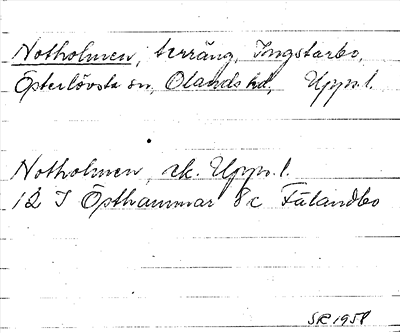 Notholmen, terräng, Ingstarbo,
Österlövsta sn, Olands hd, Upps.l.
Notholmen, ek. Upps.l.
12 I Östhammar 8c Fälandbo
SR 1958